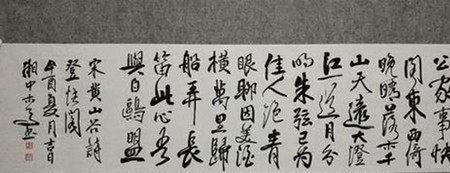 公家事快
閣東西倚
晚晴落木千
山天遠大澄
江一道月分
明朱弦已為
佳人絕青
眼聊因美酒
橫萬里歸
船弄長
笛此心吾
與白鷗盟
宋黃山谷詩
登快閣
酉夏月吉日
湘中